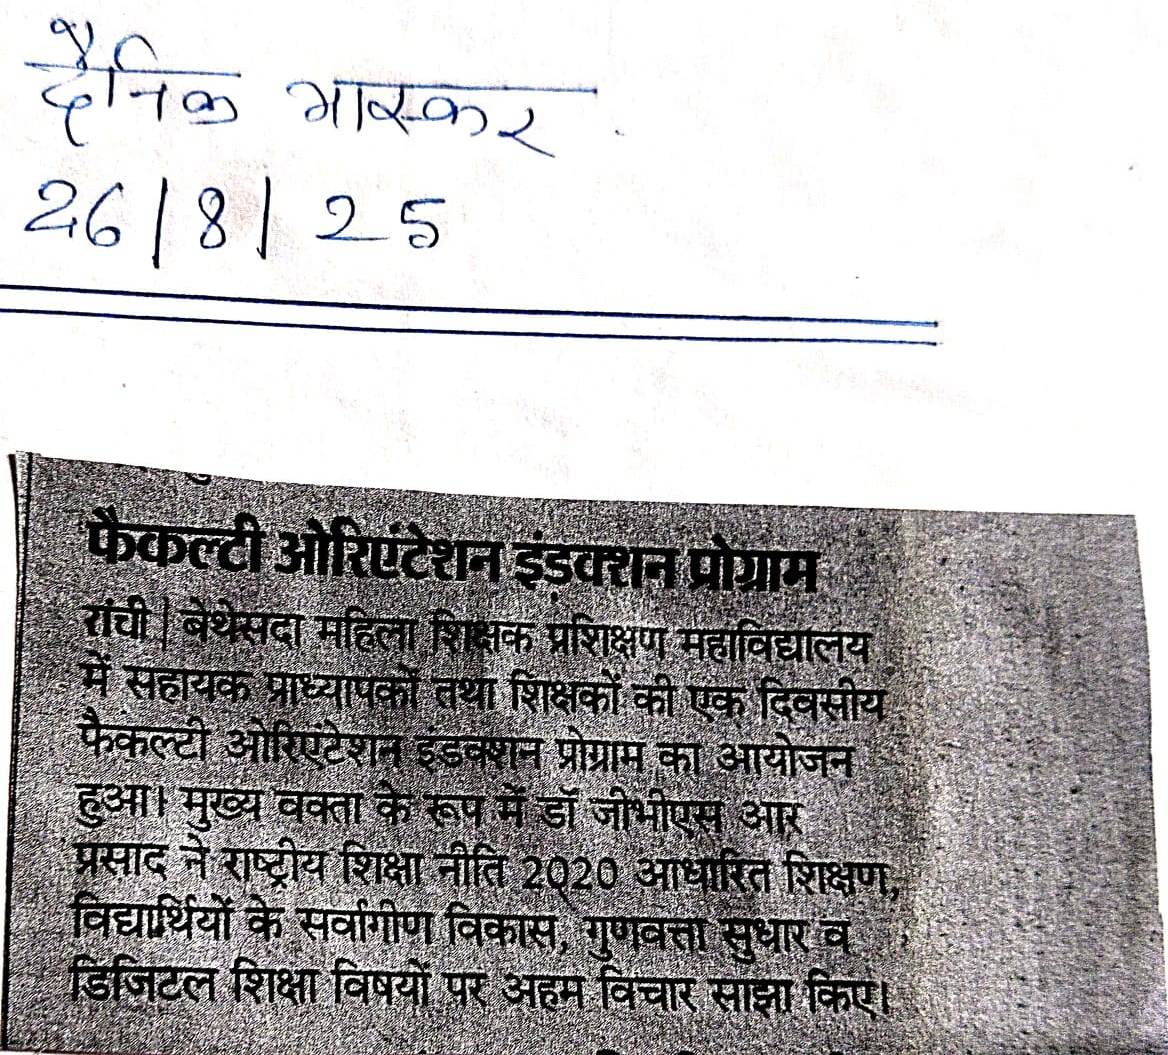 दैनिक भास्कर.
26/8/25
फैकल्टी ओरिएंटेशन इंडक्शन प्रोग्राम
रांची | बेथेसदा महिला शिक्षक प्रशिक्षण महाविद्यालय
में सहायक प्राध्यापकों तथा शिक्षकों की एक दिवसीय
फैकल्टी ओरिएंटेशन इंडक्शन प्रोग्राम का आयोजन
हुआ। मुख्य वक्ता के रूप में डॉ जीभीएस आर
प्रसाद ने राष्ट्रीय शिक्षा नीति 2020 आधारित शिक्षण,
विद्यार्थियों के सर्वांगीण विकास, गुणवत्ता सुधार व
डिजिटल शिक्षा विषयों पर अहम विचार साझा किए।